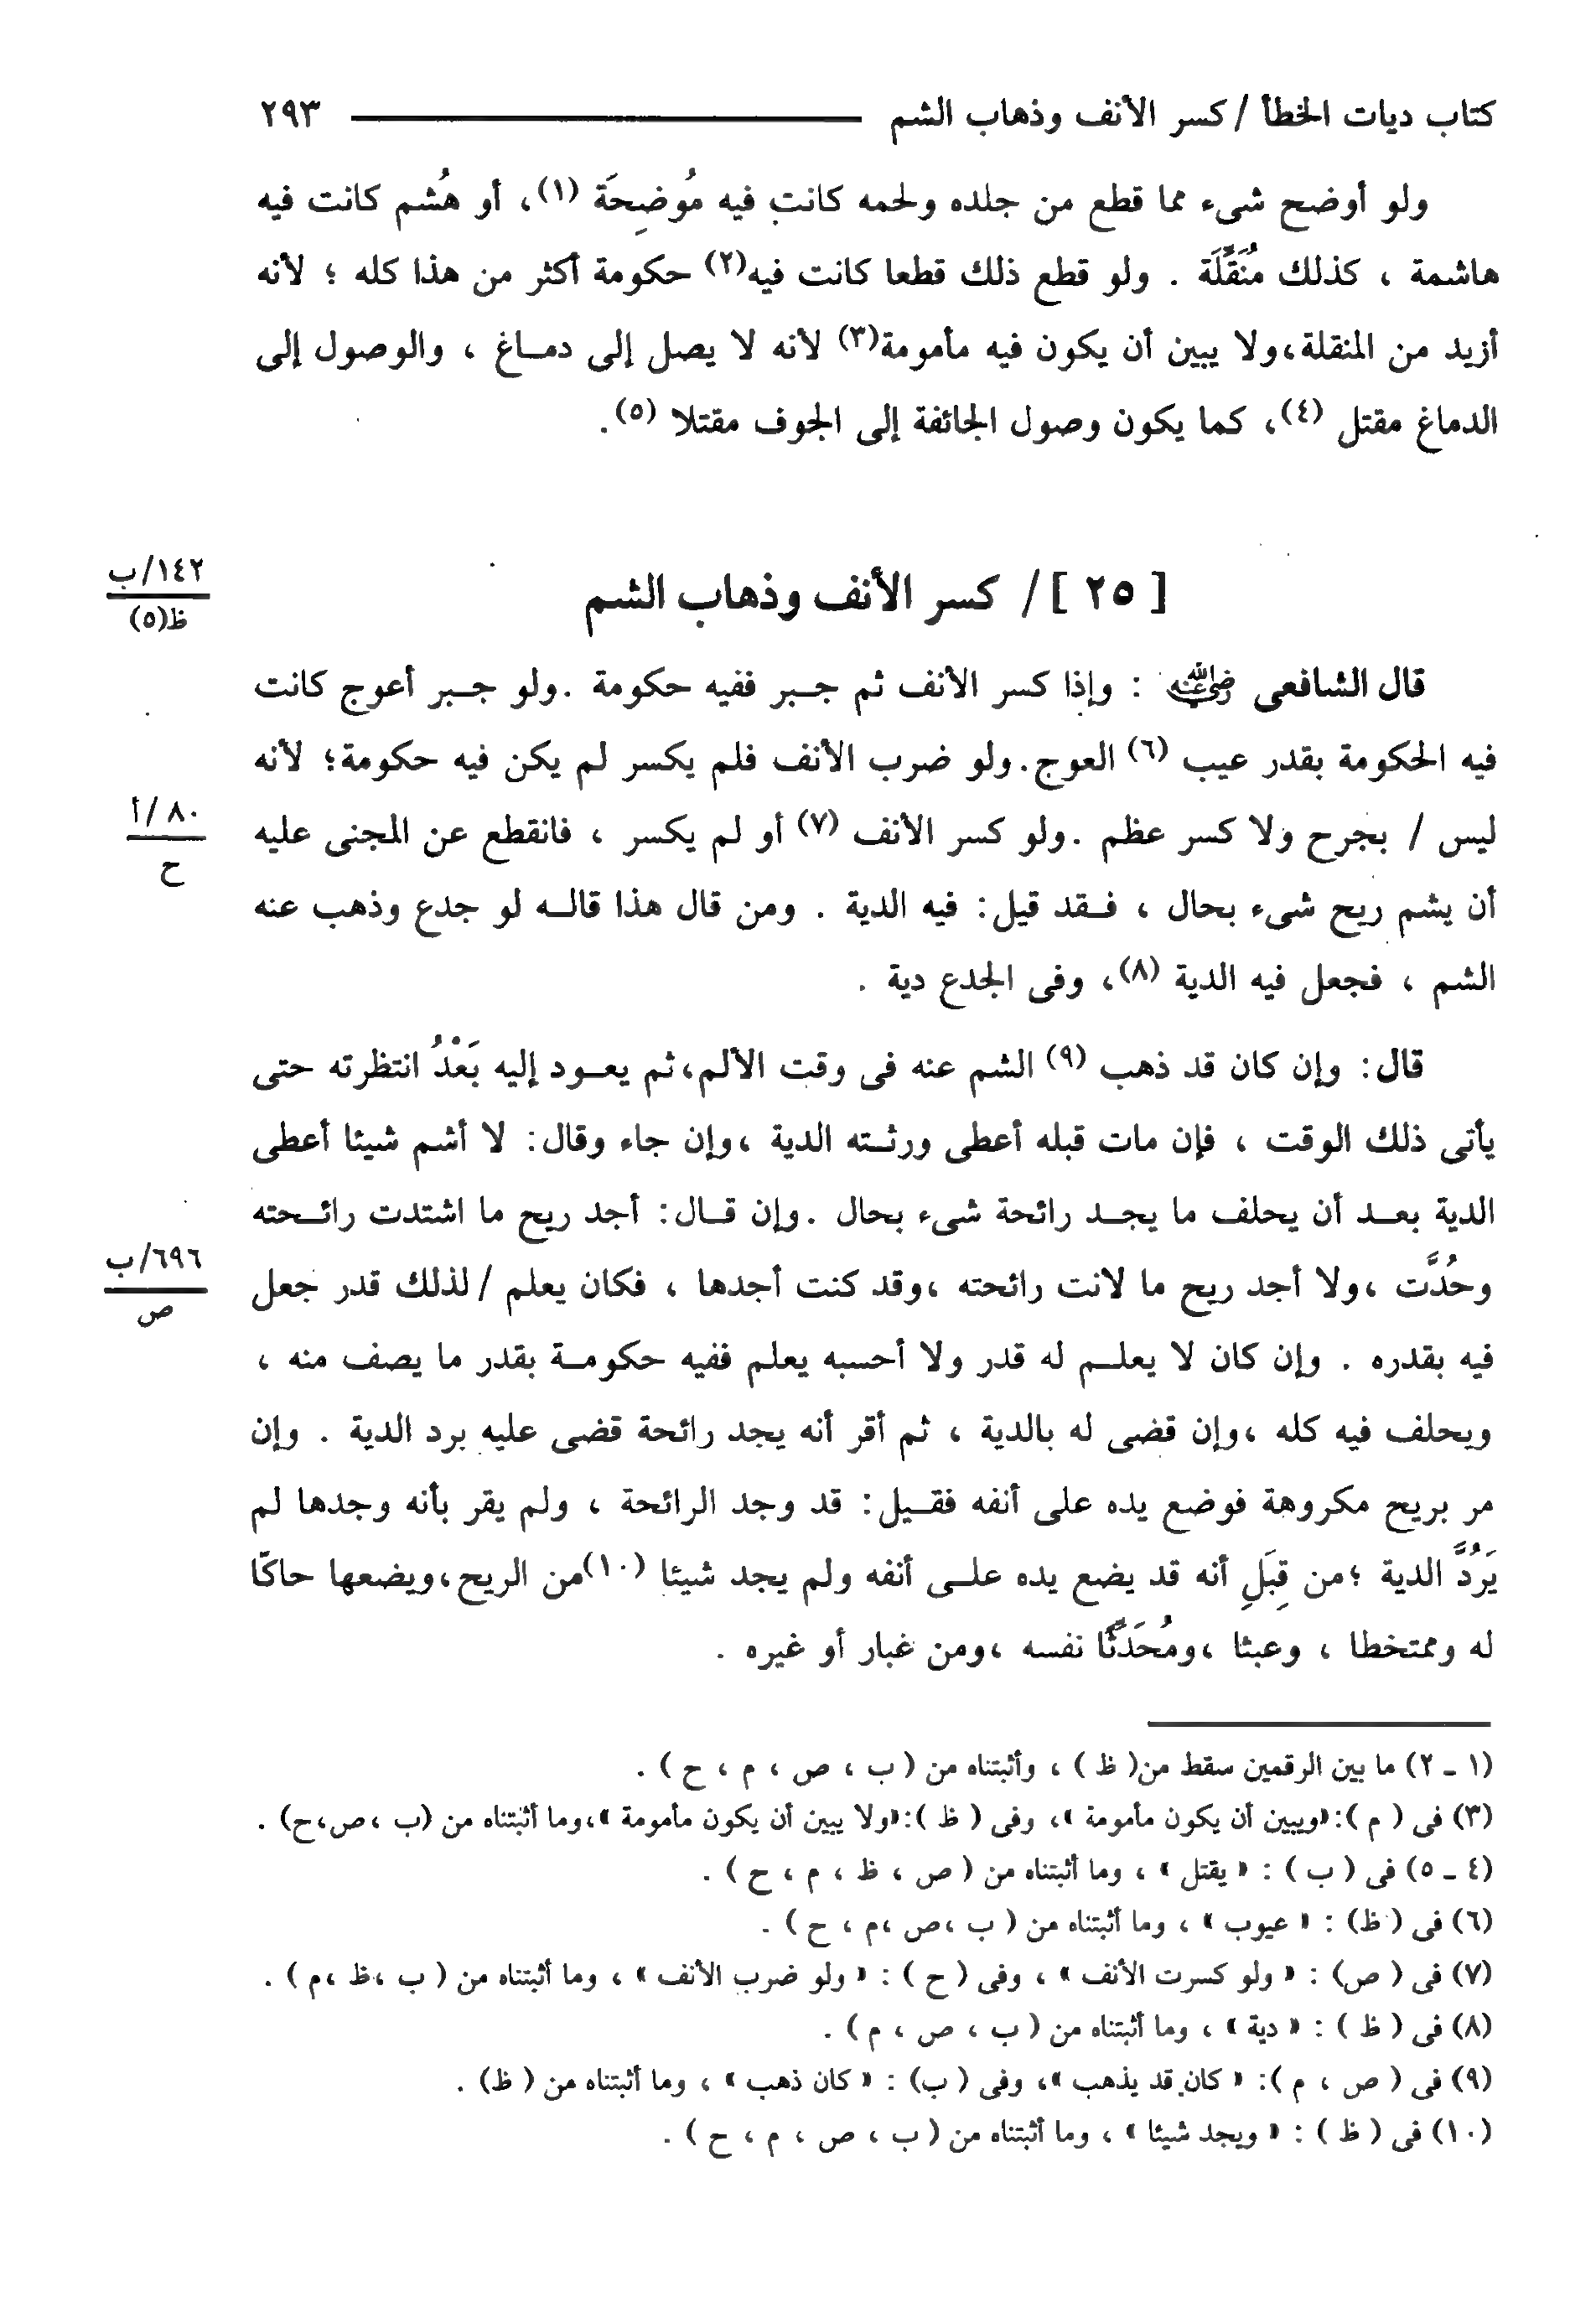 كتاب ديات الخطأ / كسر الأنف وذهاب الشم ٢٩٣
ولو أوضح شىء مما قطع من جلده ولحمه كانت فيه مُوضِحَة (١)، أو هُشم كانت فيه
هاشمة ، كذلك مُنَقِّلَة . ولو قطع ذلك قطعا كانت فيه(٢) حكومة أكثر من هذا كله ؛ لأنه
أزيد من المنقلة،ولا يبين أن يكون فيه مأمومة(٣) لأنه لا يصل إلى دمـاغ ، والوصول إلى
الدماغ مقتل (٤)، كما يكون وصول الجائفة إلى الجوف مقتلا (٥).
١٤٢/ب
ظ(٥)
[ ٢٥ ] / كسر الأنف وذهاب الشم
قال الشافعى رضي الله عنه : وإذا كسر الأنف ثم جـبر ففيه حكومة .ولو جـبر أعوج كانت
فيه الحكومة بقدر عيب (٦) العوج.ولو ضرب الأنف فلم يكسر لم يكن فيه حكومة؛ لأنه
٨٠/أ
ح
ليس / بجرح ولا كسر عظم .ولو كسر الأنف (٧) أو لم يكسر ، فانقطع عن المجنى عليه
أن يشم ريح شىء بحال ، فـقد قيل: فيه الدية . ومن قال هذا قالـه لو جدع وذهب عنه
الشم ، فجعل فيه الدية (٨)، وفى الجدع دية .
قال: وإن كان قد ذهب (٩) الشم عنه فى وقت الألم،ثم يعـود إليه بَعْدُ انتظرته حتى
يأتى ذلك الوقت ، فإن مات قبله أعطى ورثـته الدية ،وإن جاء وقال: لا أشم شيئا أعطى
الدية بعـد أن يحلف ما يجـد رائحة شىء بحال .وإن قـال: أجد ريح ما اشتدت رائـحته
٦٩٦/ب
ص
وحُدَّت ،ولا أجد ريح ما لانت رائحته ،وقد كنت أجدها ، فكان يعلم /لذلك قدر جعل
فيه بقدره . وإن كان لا يعلـم له قدر ولا أحسبه يعلم ففيه حكومـة بقدر ما يصف منه ،
ويحلف فيه كله ،وإن قضى له بالدية ، ثم أقر أنه يجد رائحة قضى عليه برد الدية . وإن
مر بريح مكروهة فوضع يده على أنفه فقـيل: قد وجد الرائحة ، ولم يقر بأنه وجدها لم
يَرُدَّ الدية ؛من قِبَلِ أنه قد يضع يده علـى أنفه ولم يجد شيئا (١٠)من الريح،ويضعها حاكّا
له وممتخطا ، وعبثا ،ومُحَدِّثًا نفسه ،ومن غبار أو غيره .
(١ ـ ٢) ما بين الرقمين سقط من( ظ ) ، وأثبتناه من ( ب ، ص ، م ، ح ) .
(٣) فى ( م ):«ويبين أن يكون مأمومة »، وفى ( ظ ):«ولا يبين أن يكون مأمومة »،وما أثبتناه من (ب ،ص،ح) .
(٤ ـ ٥) فى ( ب ) : « يقتل » ، وما أثبتناه من ( ص ، ظ ، م ، ح ) .
(٦) فى ( ظ) : « عيوب » ، وما أثبتناه من ( ب ،ص ،م ، ح ) .
(٧) فى ( ص) : « ولو كسرت الأنف » ، وفى ( ح ) : « ولو ضرب الأنف » ، وما أثبتناه من ( ب ،ظ ،م ) .
(٨) فى ( ظ ) : « دية » ، وما أثبتناه من ( ب ، ص ، م ) .
(٩) فى ( ص ، م ): « كان قد يذهب »، وفى ( ب) : « كان ذهب » ، وما أثبتناه من ( ظ) .
(١٠) فى ( ظ ) : « ويجد شيئا » ، وما أثبتناه من ( ب ، ص ، م ، ح ) .